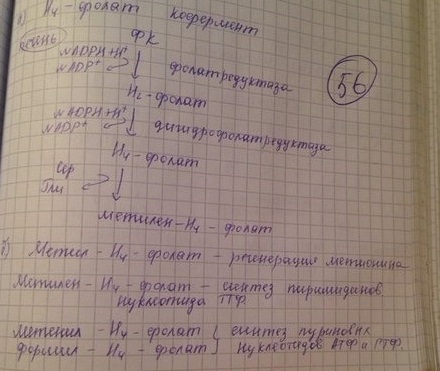 а) H₄ - фолат кофермент
печень ФК
NADPH+H⁺
NADP⁺ фолатредуктаза
H₂ - фолат 56
NADPH+H⁺
NADP⁺ дигидрофолатредуктаза
H₄ - фолат
Сер
Гли
метилен-H₄ - фолат
б) Метил - H₄ - фолат - регенерация метионина
Метилен - H₄ - фолат - синтез пиримидинов.
нуклеотида
Метенил - H₄ - фолат } синтез пуриновых
Формил - H₄ - фолат } нуклеотидов АТФ и ГТФ.